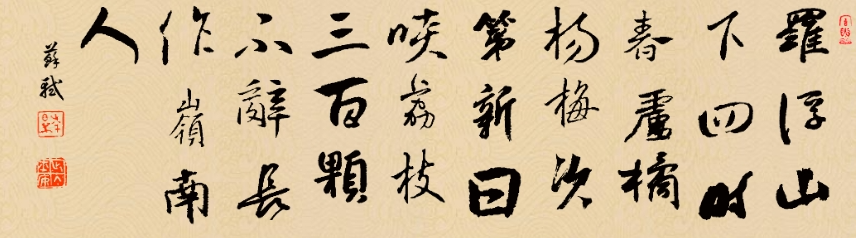 羅浮山
下四时
春盧橘
杨梅次
第新日
啖荔枝
三百顆
不辭長
作嶺南
人
蘇軾